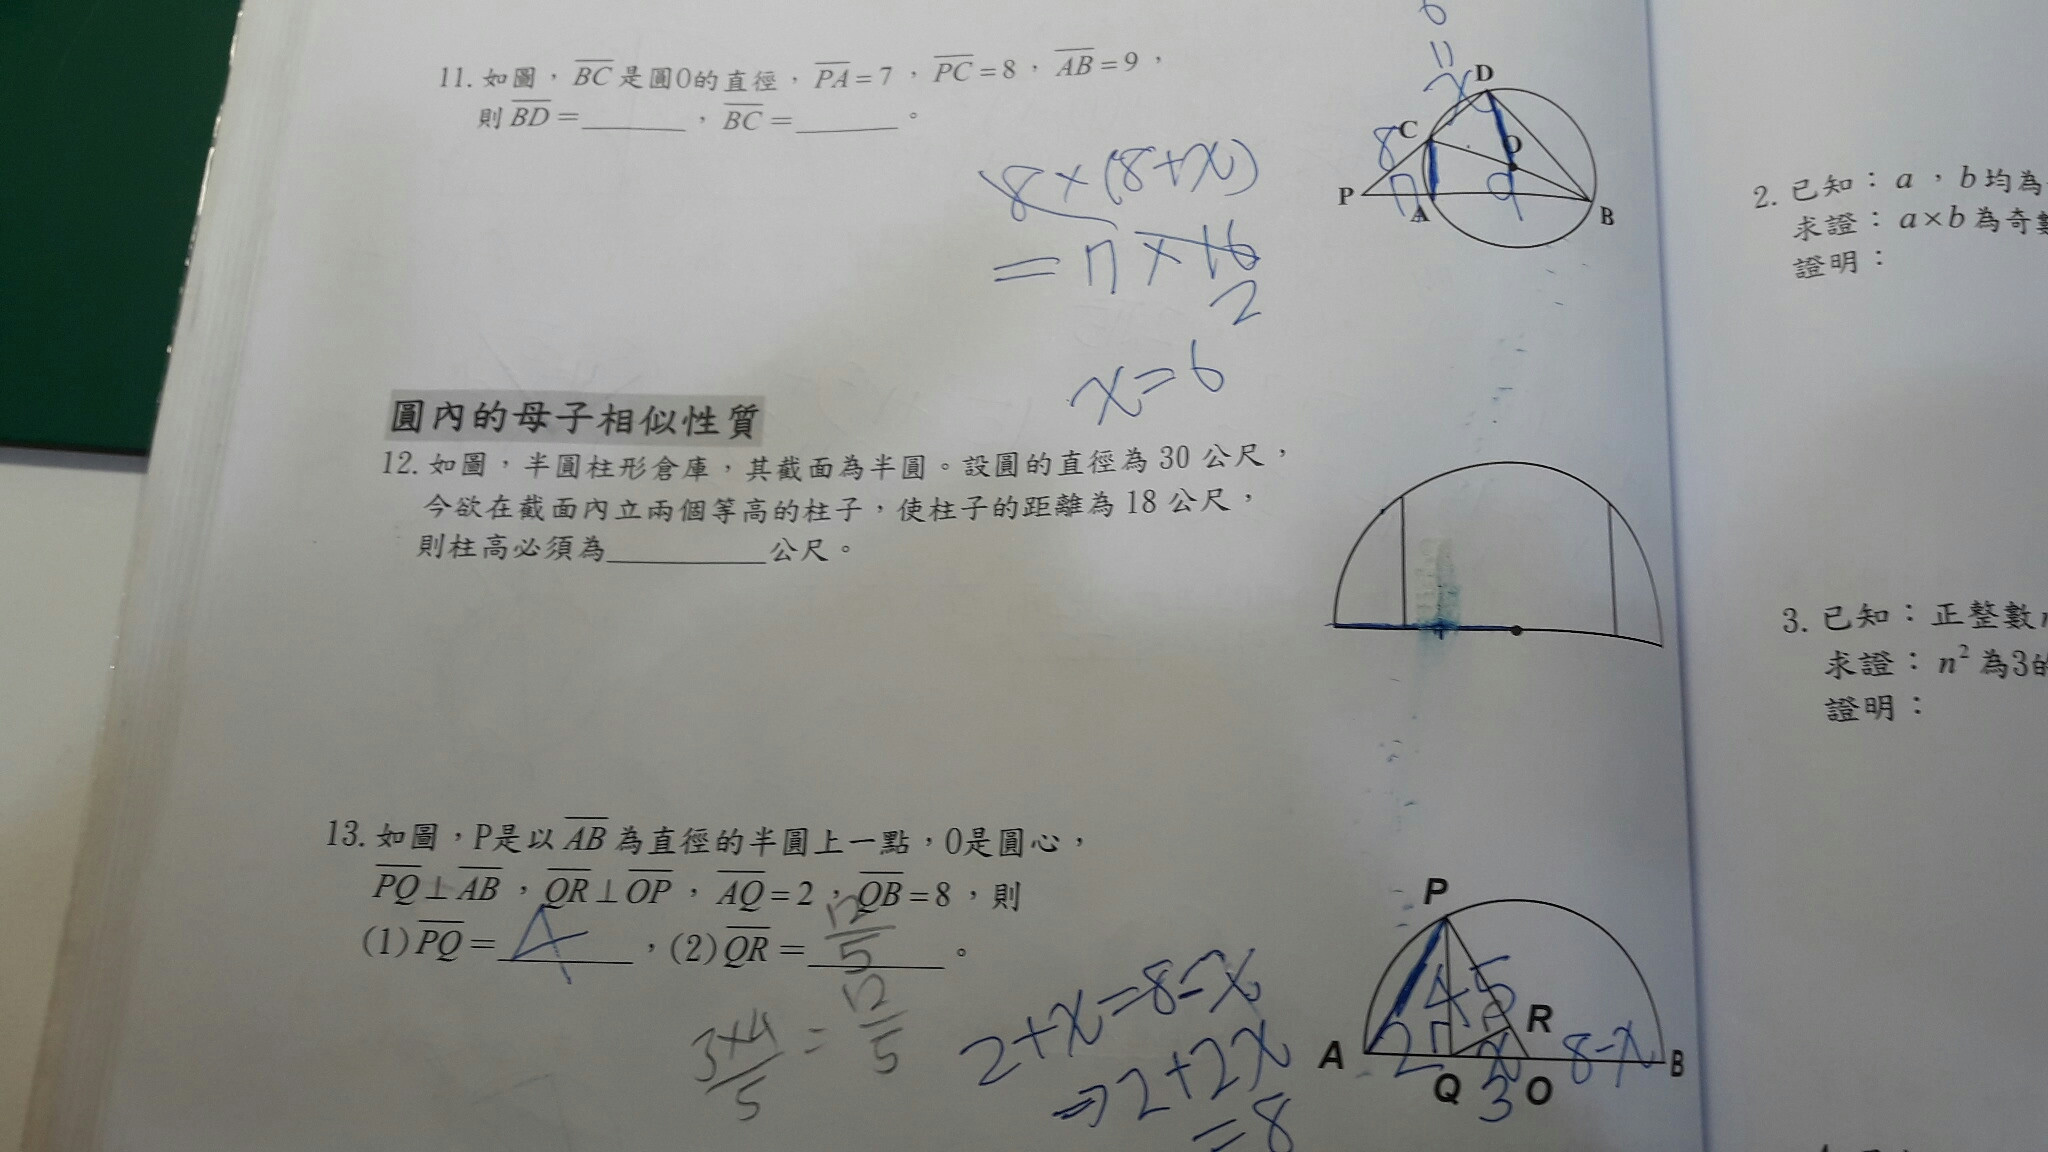 11. 如圖，BC是圓O的直徑，PA=7，PC=8，AB=9，
則BD=______，BC=______。
8×(8+x)
=7×16
2
x=6
6
=
x
D
C
8
O
P
7
A
9
B
圓內的母子相似性質
12. 如圖，半圓柱形倉庫，其截面為半圓。設圓的直徑為30公尺，
今欲在截面內立兩個等高的柱子，使柱子的距離為18公尺，
則柱高必須為__________公尺。
13. 如圖，P是以AB為直徑的半圓上一點，O是圓心，
PQ⊥AB，QR⊥OP，AQ=2，QB=8，則
(1)PQ=4，(2)QR=12/5。
3×4/5=12/5
2+x=8-x
⇒2+2x
=8
P
4 5
R
A 2 x 8-x B
Q 3 O
2. 已知：a，b均為
求證：a×b為奇數
證明：
3. 已知：正整數
求證：n²為3的
證明：